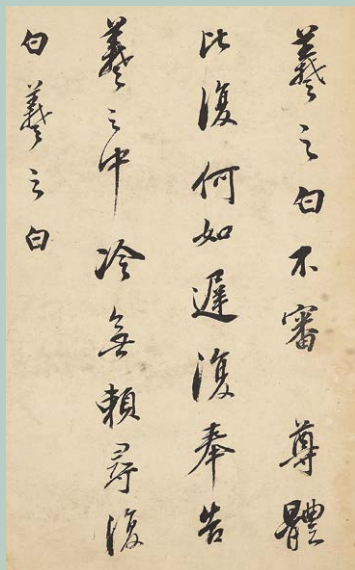 羲之白不審尊體
比復何如遲復奉告
羲之中冷無賴尋復
白羲之白